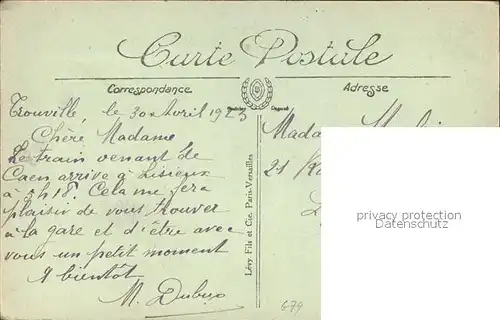 Carte Postale
Correspondance
Adresse
Trouville, le 30 Avril 1923
Chère Madame
Le train venant de
Caen arrive à Lisieux
à 5h18. Cela me fera
plaisir de vous trouver
à la gare et d'être avec
vous un petit moment
A bientôt
M.
Lévy Fils et Cie, Paris-Versailles
Madame
21
privacy protection
(Datenschutz)
679